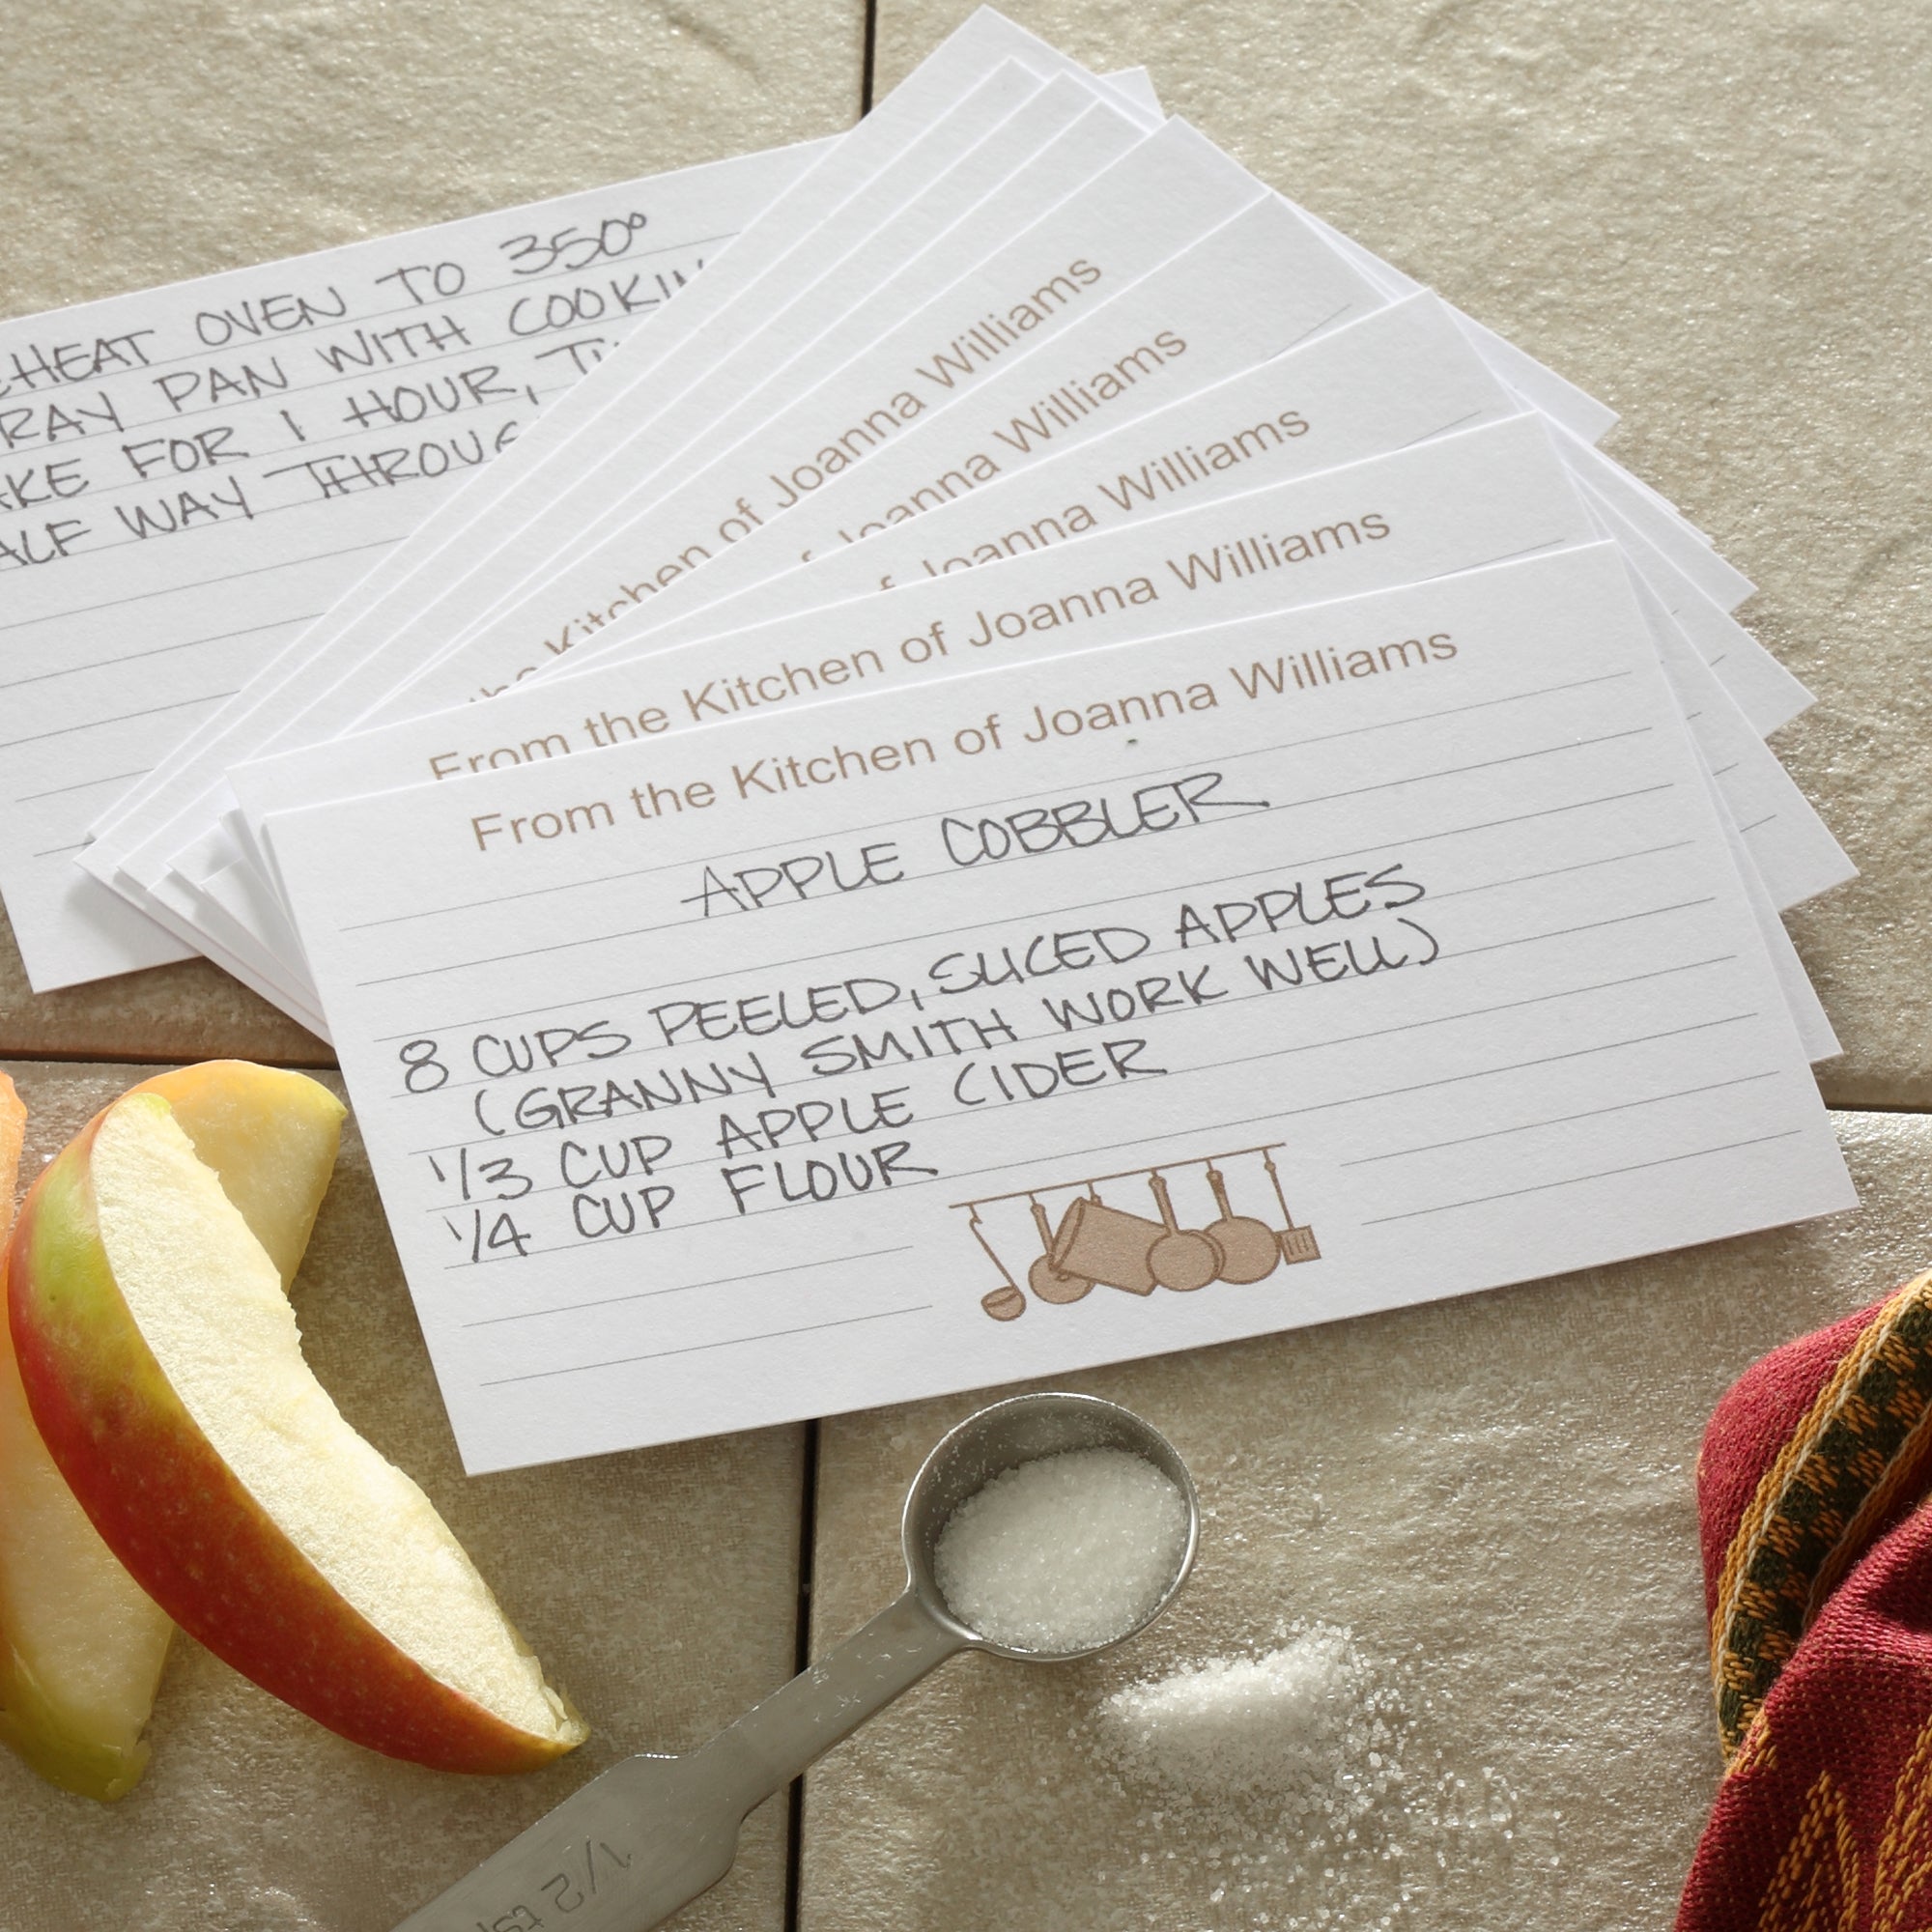 OVEN TO 350°
PAN WITH
FOR 1 HOUR,
WAY
Kitchen of Joanna Williams
Joanna Williams
Joanna Williams
From the Kitchen of Joanna Williams
From the Kitchen of Joanna Williams
APPLE COBBLER
8 CUPS PEELED, SLICED APPLES
(GRANNY SMITH WORK WELL)
1/3 CUP APPLE CIDER
1/4 CUP FLOUR
1/2 tsp